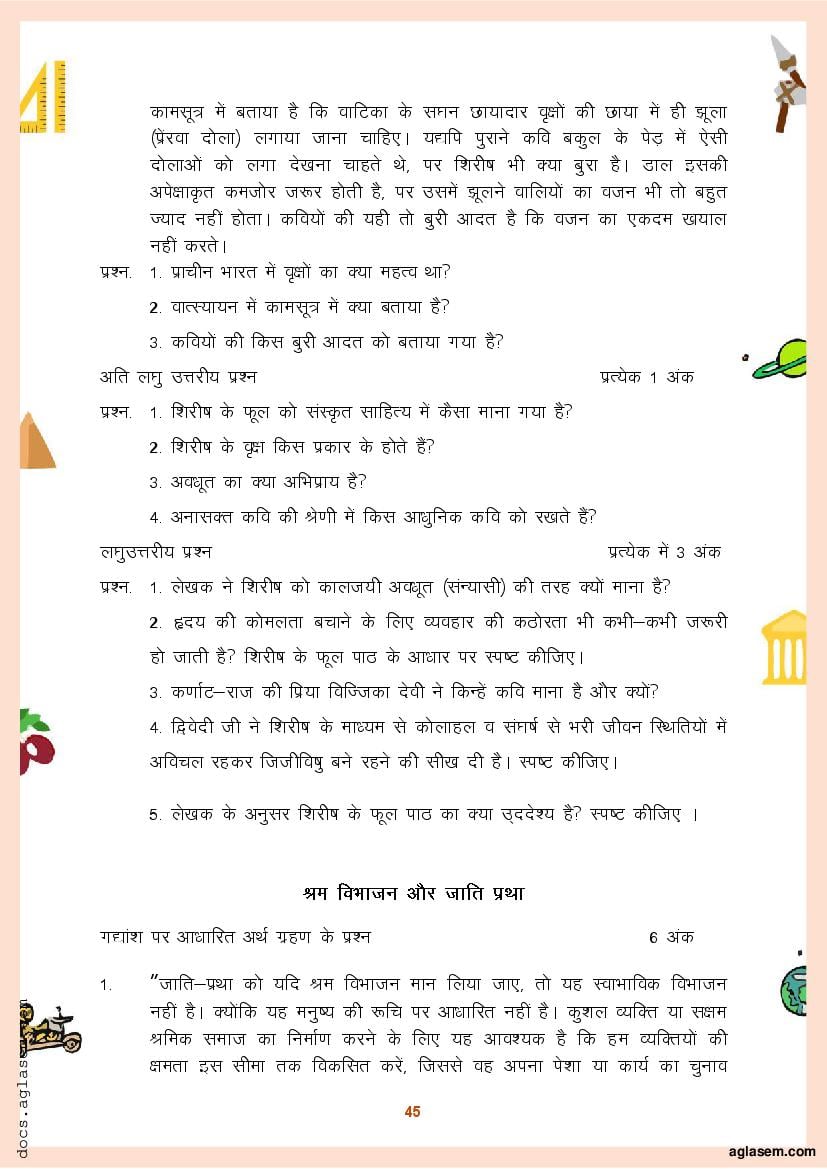 कामसूत्र में बताया है कि वाटिका के सघन छायादार वृक्षों की छाया में ही झूला
(प्रेंरवा दोला) लगाया जाना चाहिए। यद्यपि पुराने कवि बकुल के पेड़ में ऐसी
दोलाओं को लगा देखना चाहते थे, पर शिरीष भी क्या बुरा है। डाल इसकी
अपेक्षाकृत कमजोर जरूर होती है, पर उसमें झूलने वालियों का वजन भी तो बहुत
ज्याद नहीं होता। कवियों की यही तो बुरी आदत है कि वजन का एकदम खयाल
नहीं करते।
प्रश्न. 1. प्राचीन भारत में वृक्षों का क्या महत्व था?
2. वात्स्यायन में कामसूत्र में क्या बताया है?
3. कवियों की किस बुरी आदत को बताया गया है?
अति लघु उत्तरीय प्रश्न प्रत्येक 1 अंक
प्रश्न. 1. शिरीष के फूल को संस्कृत साहित्य में कैसा माना गया है?
2. शिरीष के वृक्ष किस प्रकार के होते हैं?
3. अवधूत का क्या अभिप्राय है?
4. अनासक्त कवि की श्रेणी में किस आधुनिक कवि को रखते हैं?
लघुउत्तरीय प्रश्न प्रत्येक में 3 अंक
प्रश्न. 1. लेखक ने शिरीष को कालजयी अवधूत (संन्यासी) की तरह क्यों माना है?
2. हृदय की कोमलता बचाने के लिए व्यवहार की कठोरता भी कभी–कभी जरूरी
हो जाती है? शिरीष के फूल पाठ के आधार पर स्पष्ट कीजिए।
3. कर्णाट–राज की प्रिया विज्जिका देवी ने किन्हें कवि माना है और क्यों?
4. द्विवेदी जी ने शिरीष के माध्यम से कोलाहल व संघर्ष से भरी जीवन स्थितियों में
अविचल रहकर जिजीविषु बने रहने की सीख दी है। स्पष्ट कीजिए।
5. लेखक के अनुसर शिरीष के फूल पाठ का क्या उद्देश्य है? स्पष्ट कीजिए ।
श्रम विभाजन और जाति प्रथा
गद्यांश पर आधारित अर्थ ग्रहण के प्रश्न 6 अंक
1. "जाति–प्रथा को यदि श्रम विभाजन मान लिया जाए, तो यह स्वाभाविक विभाजन
नहीं है। क्योंकि यह मनुष्य की रूचि पर आधारित नहीं है। कुशल व्यक्ति या सक्षम
श्रमिक समाज का निर्माण करने के लिए यह आवश्यक है कि हम व्यक्तियों की
क्षमता इस सीमा तक विकसित करें, जिससे वह अपना पेशा या कार्य का चुनाव
45
docs.aglasem
aglasem.com